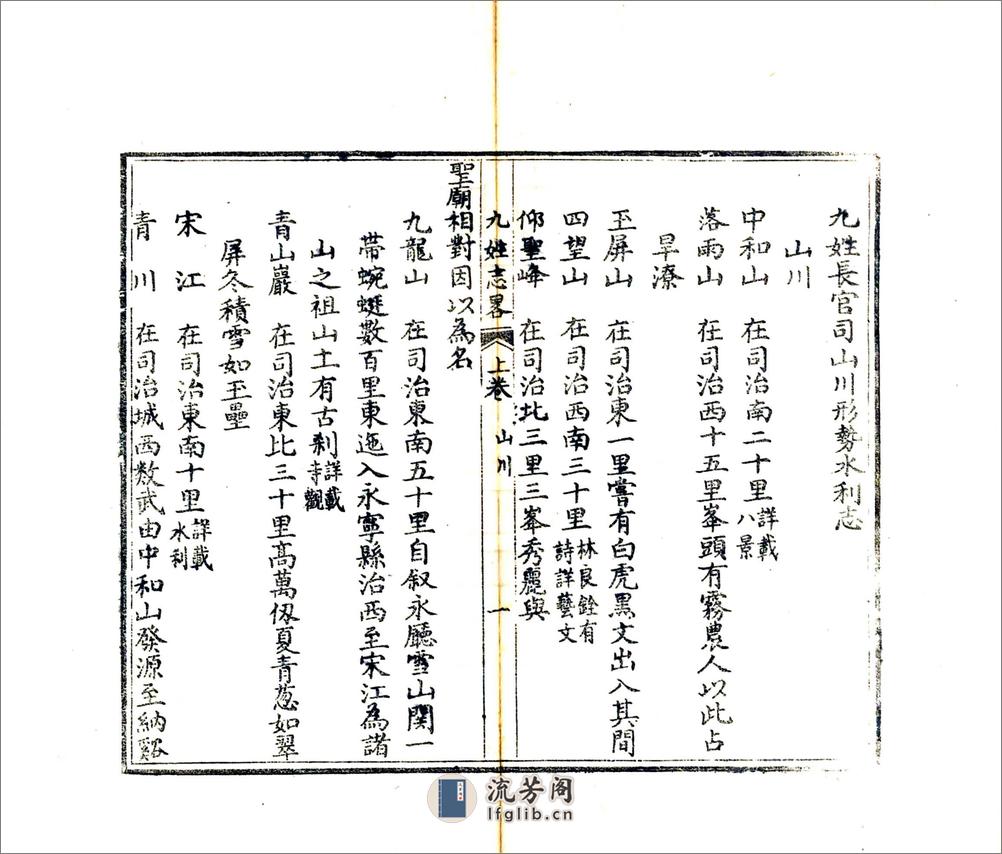 九姓長官司山川形勢水利志
山川
中和山 在司治南二十里詳載八景
落雨山 在司治西十五里峯頭有霧農人以此占
旱潦
玉屏山 在司治東一里嘗有白虎黑文出入其間
四望山 在司治西南三十里林良銓有詩詳藝文
仰聖峰 在司治北三里三峯秀麗與
九姓志畧 上卷 山川 一
聖廟相對因以為名
九龍山 在司治東南五十里自叙永廳雪山関一
帶蜿蜒數百里東迤入永寧縣治西至宋江為諸
山之祖山土有古刹詳載寺觀
青山巖 在司治東比三十里高萬仭夏青葱如翠
屏冬積雪如玉壘
宋江 在司治東南十里詳載水利
青川 在司治城西数武由中和山發源至納谿
流芳阁
lfglib.cn